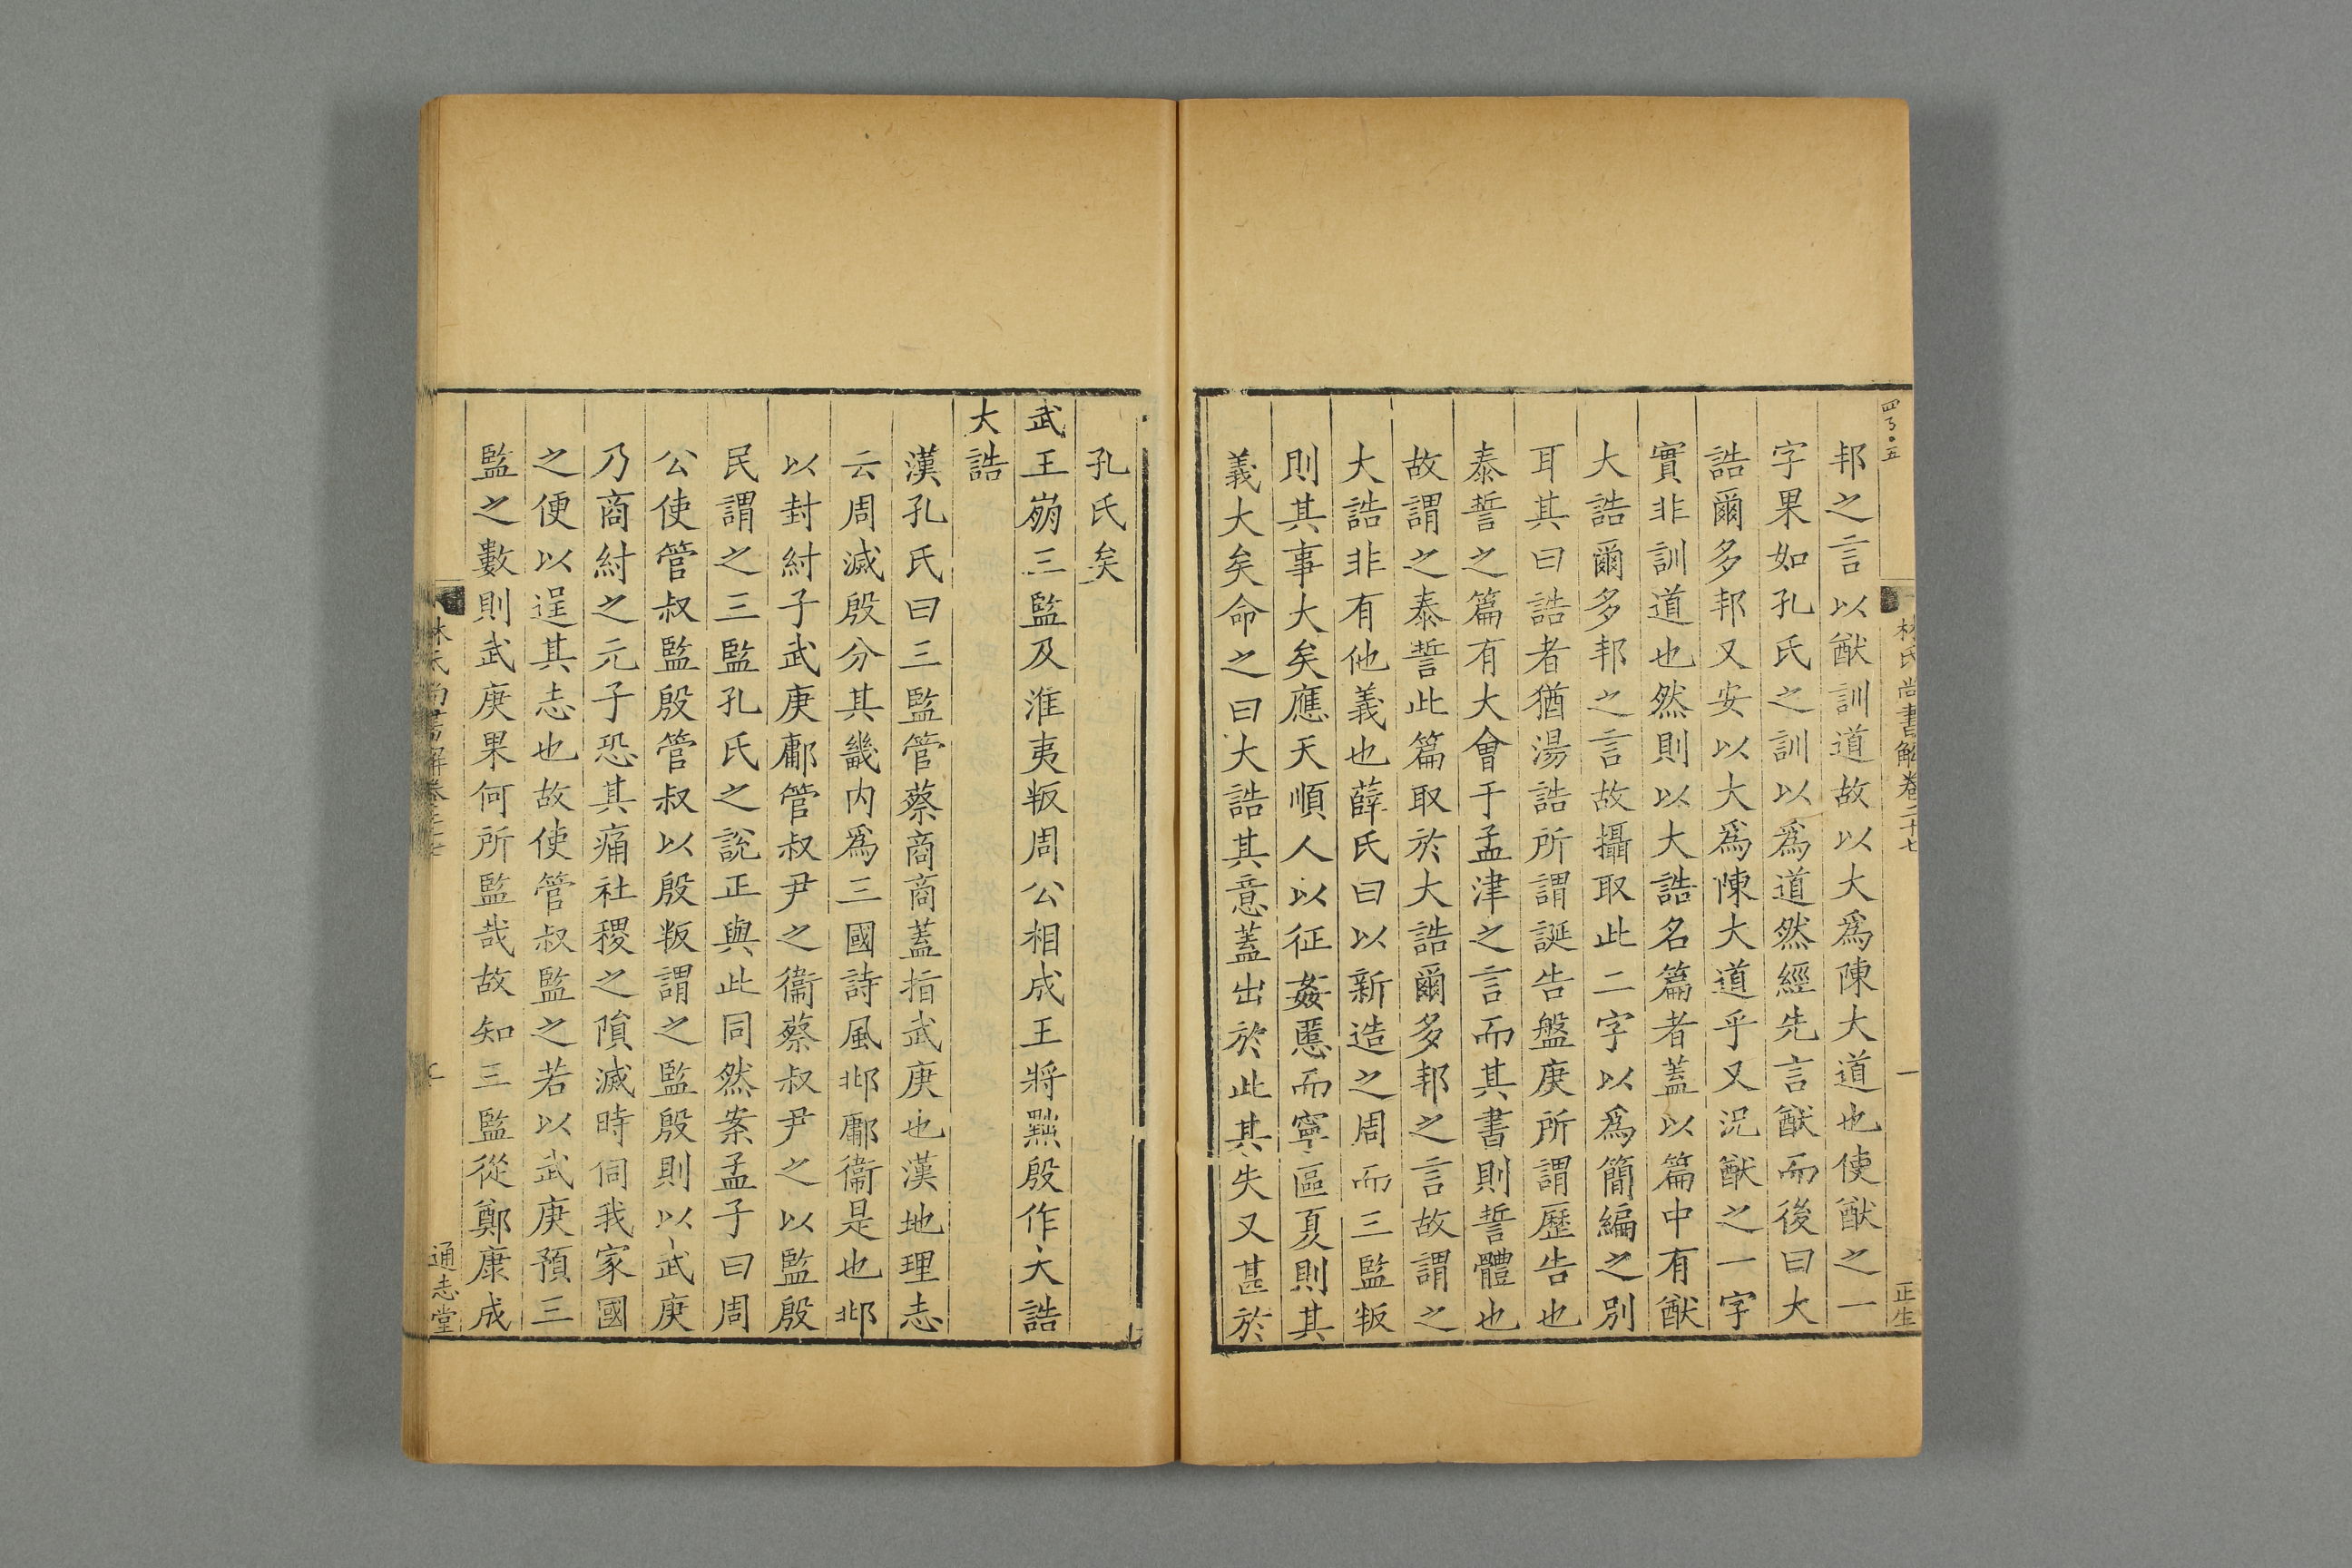 林氏尚書解卷二十七
一
正生
邦之言以猷訓道故以大爲陳大道也使猷之一
字果如孔氏之訓以爲道然經先言猷而後曰大
誥爾多邦又安以大爲陳大道乎又況猷之一字
實非訓道也然則以大誥名篇者蓋以篇中有猷
大誥爾多邦之言故攝取此二字以爲簡編之別
耳其曰誥者猶湯誥所謂誕告盤庚所謂歷告也
泰誓之篇有大會于孟津之言而其書則誓體也
故謂之泰誓此篇取於大誥爾多邦之言故謂之
大誥非有他義也薛氏曰以新造之周而三監叛
則其事大矣應天順人以征姦慝而寧區夏則其
義大矣命之曰大誥其意蓋出於此其失又甚於
孔氏矣
武王崩三監及淮夷叛周公相成王將黜殷作大誥
大誥
漢孔氏曰三監管蔡商商蓋指武庚也漢地理志
云周滅殷分其畿内爲三國詩風邶鄘衞是也邶
以封紂子武庚鄘管叔尹之衞蔡叔尹之以監殷
民謂之三監孔氏之說正與此同然案孟子曰周
公使管叔監殷管叔以殷叛謂之監殷則以武庚
乃商紂之元子恐其痛社稷之隕滅時伺我家國
之便以逞其志也故使管叔監之若以武庚預三
監之數則武庚果何所監哉故知三監從鄭康成
林氏尚書解卷二十七
通志堂